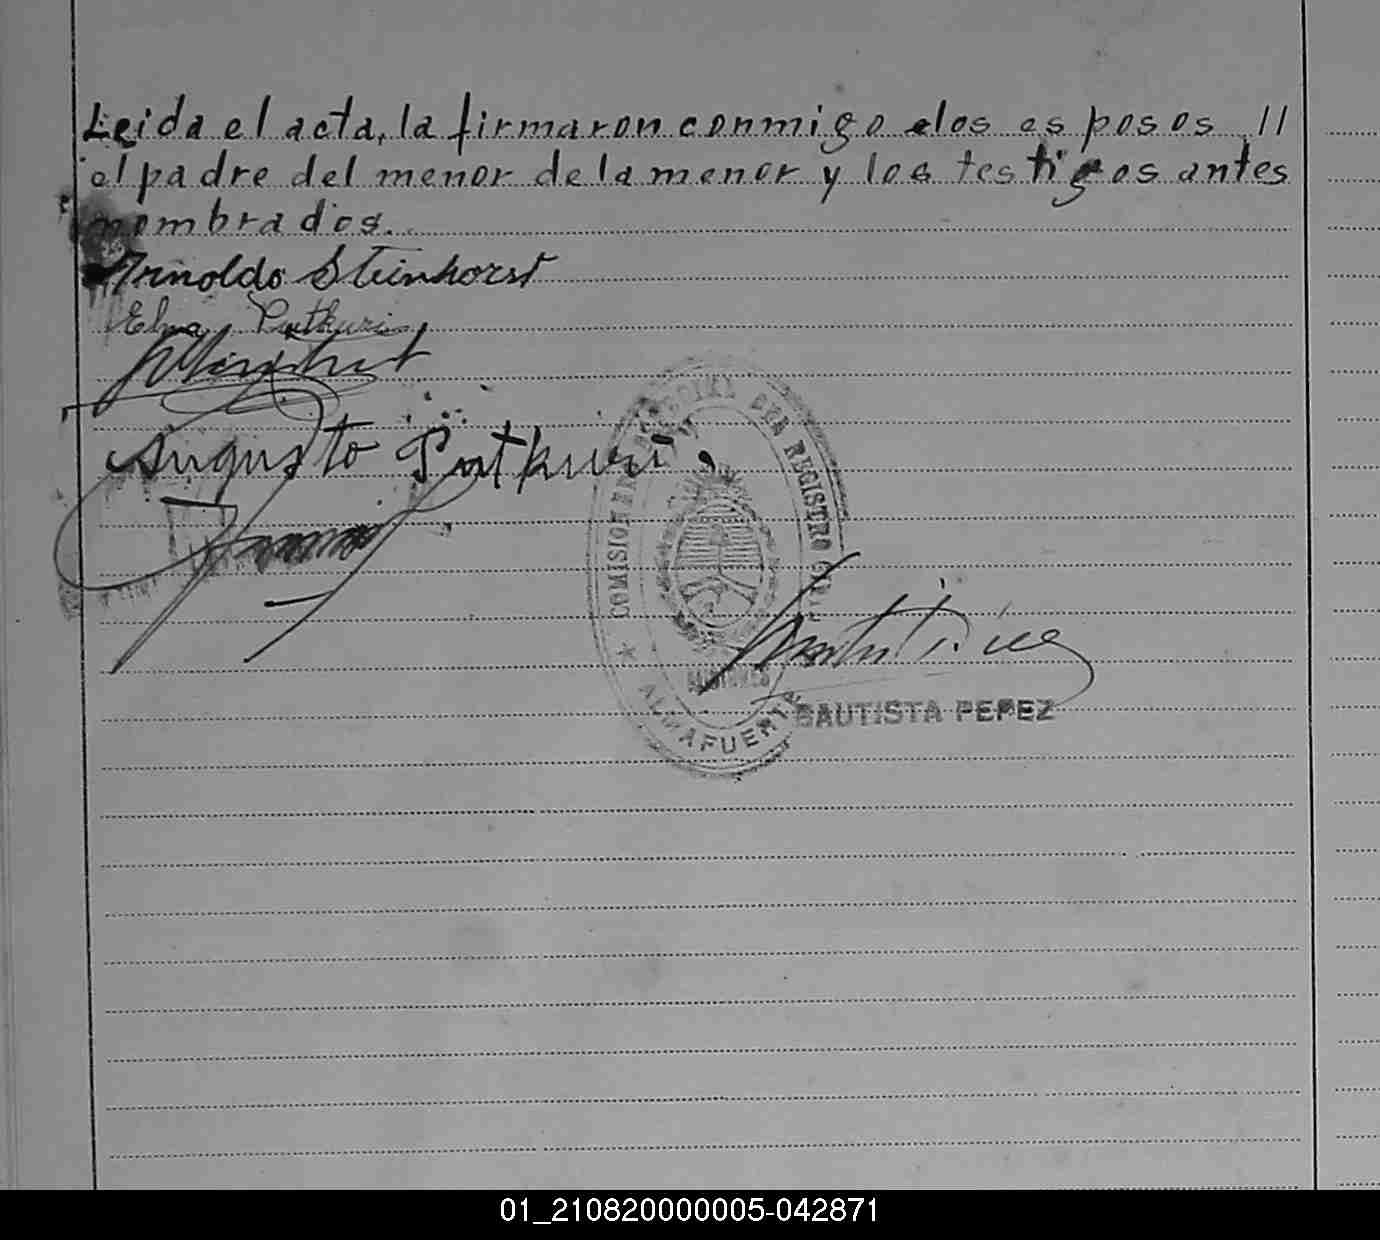 Leida el acta, la firmaron conmigo los esposos, //
el padre del menor de la menor y los testigos antes
nombrados.
Arnoldo Steinhorst
Elna Putkuri
Augusto Putkuri
COMISION REGISTRO CIVIL
MISIONES
ALMAFUERTE
BAUTISTA PEREZ
01_210820000005-042871